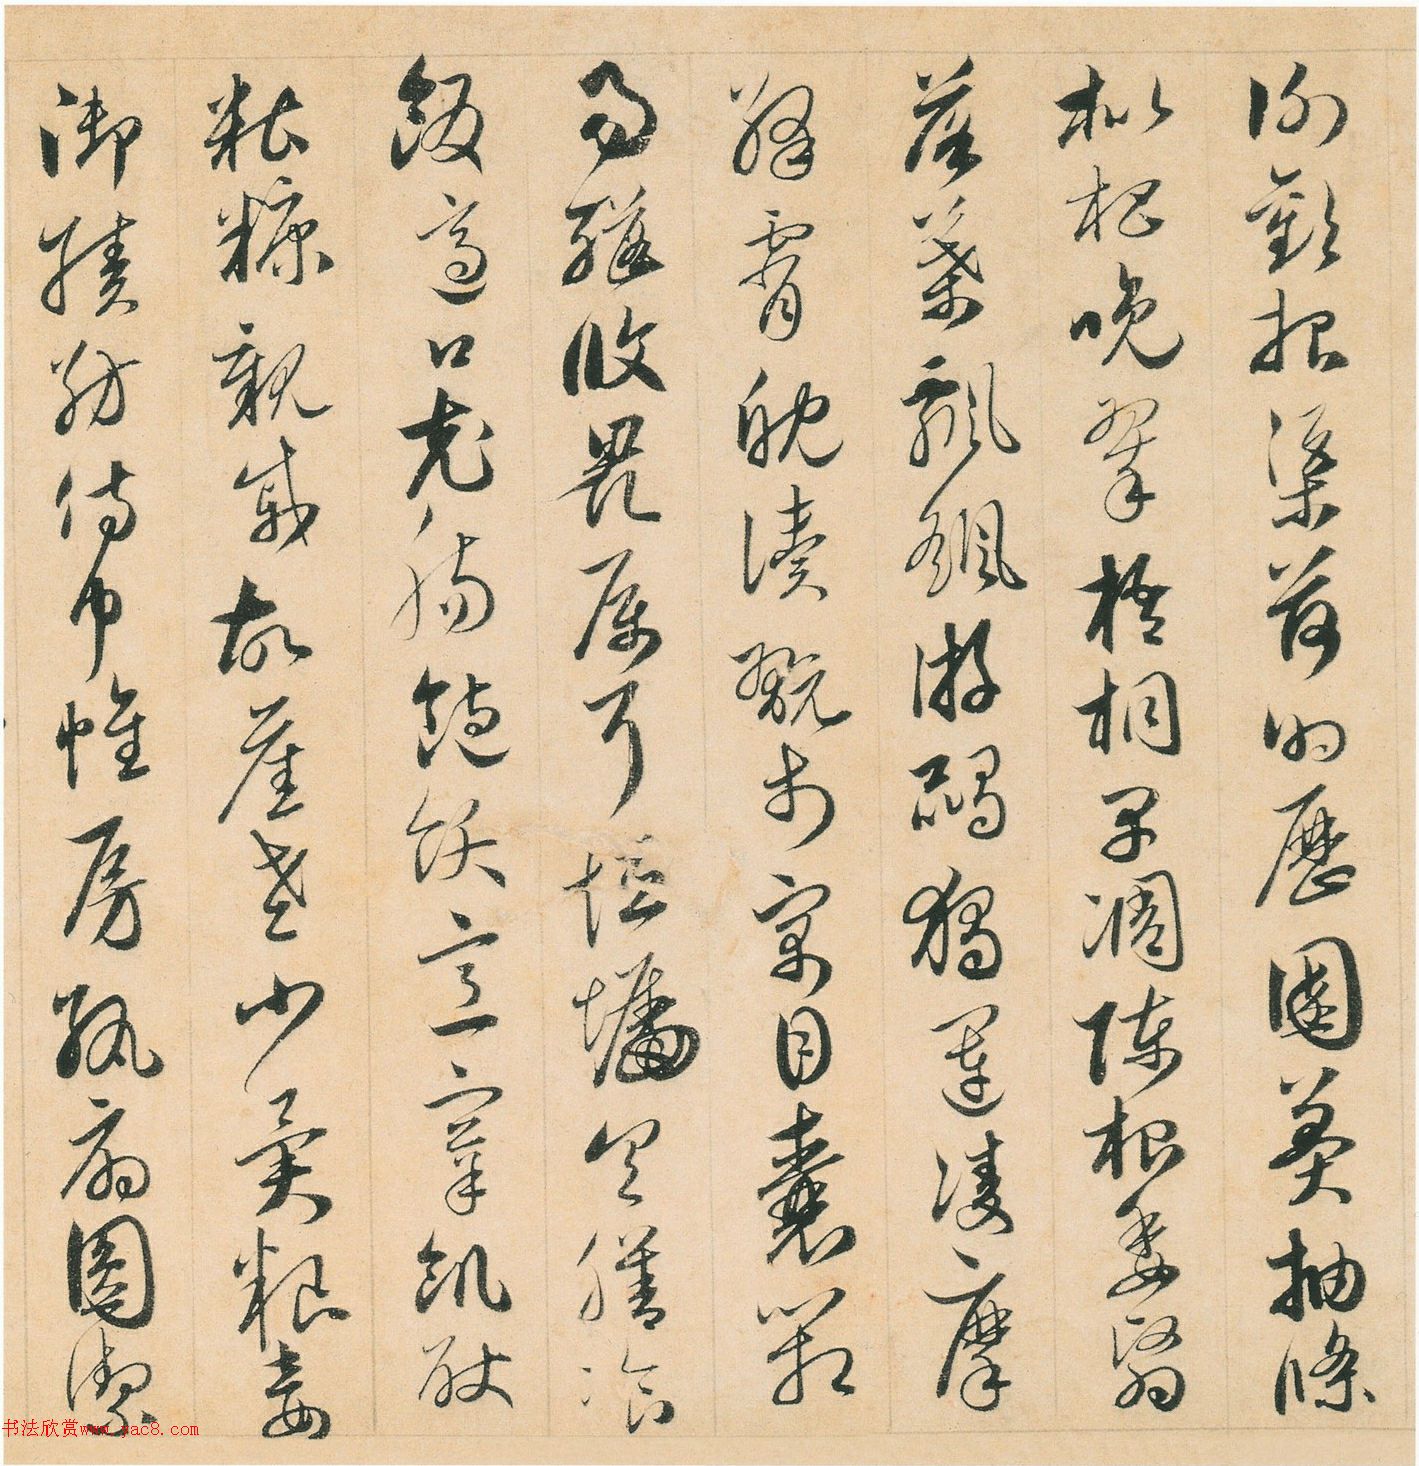 謝歡招渠荷的歷園莽抽條
枇杷晚翠梧桐早凋陳根委翳
落葉飄颻遊鵾獨運凌摩
絳霄耽讀翫市寓目囊箱
易輶攸畏屬耳垣墻具膳飡
飯適口充腸飽飫烹宰飢厭
糟糠親戚故舊老少異糧妾
御績紡侍巾帷房紈扇圓潔
书法欣赏www.yac8.com